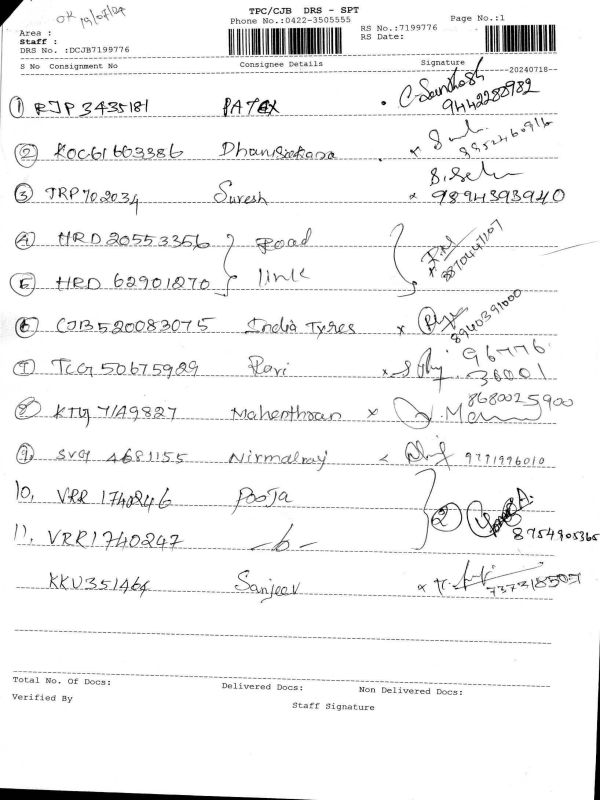 OK 19/07/24
TPC/CJB DRS - SPT
Phone No.:0422-3505555
Page No.:1
Area :
Staff :
DRS No. :DCJB7199776
RS No.:7199776
RS Date:
S No Consignment No Consignee Details Signature
20240718
① RJP3435181 PATEX C. Santhosh 9442282982
② KOC61603386
③ JRP702034 Suresh 9894393940
④ HRD20553356 Road
⑤ HRD 62901270 link 8870447107
⑥ CJB520083075 India Tyres x 8940391000
⑦ TCG50675929 Ravi x 96776 36001
⑧ KTY7149827 Mahenthran x 8680025900
⑨ SVG 4681155 Nirmalraj 9771996010
10, VRR 1740246 Pooja
11, VRR1740247 ② 8754905365
KKU351464 Sanjeev x
Total No. Of Docs: Delivered Docs: Non Delivered Docs:
Verified By
Staff Signature